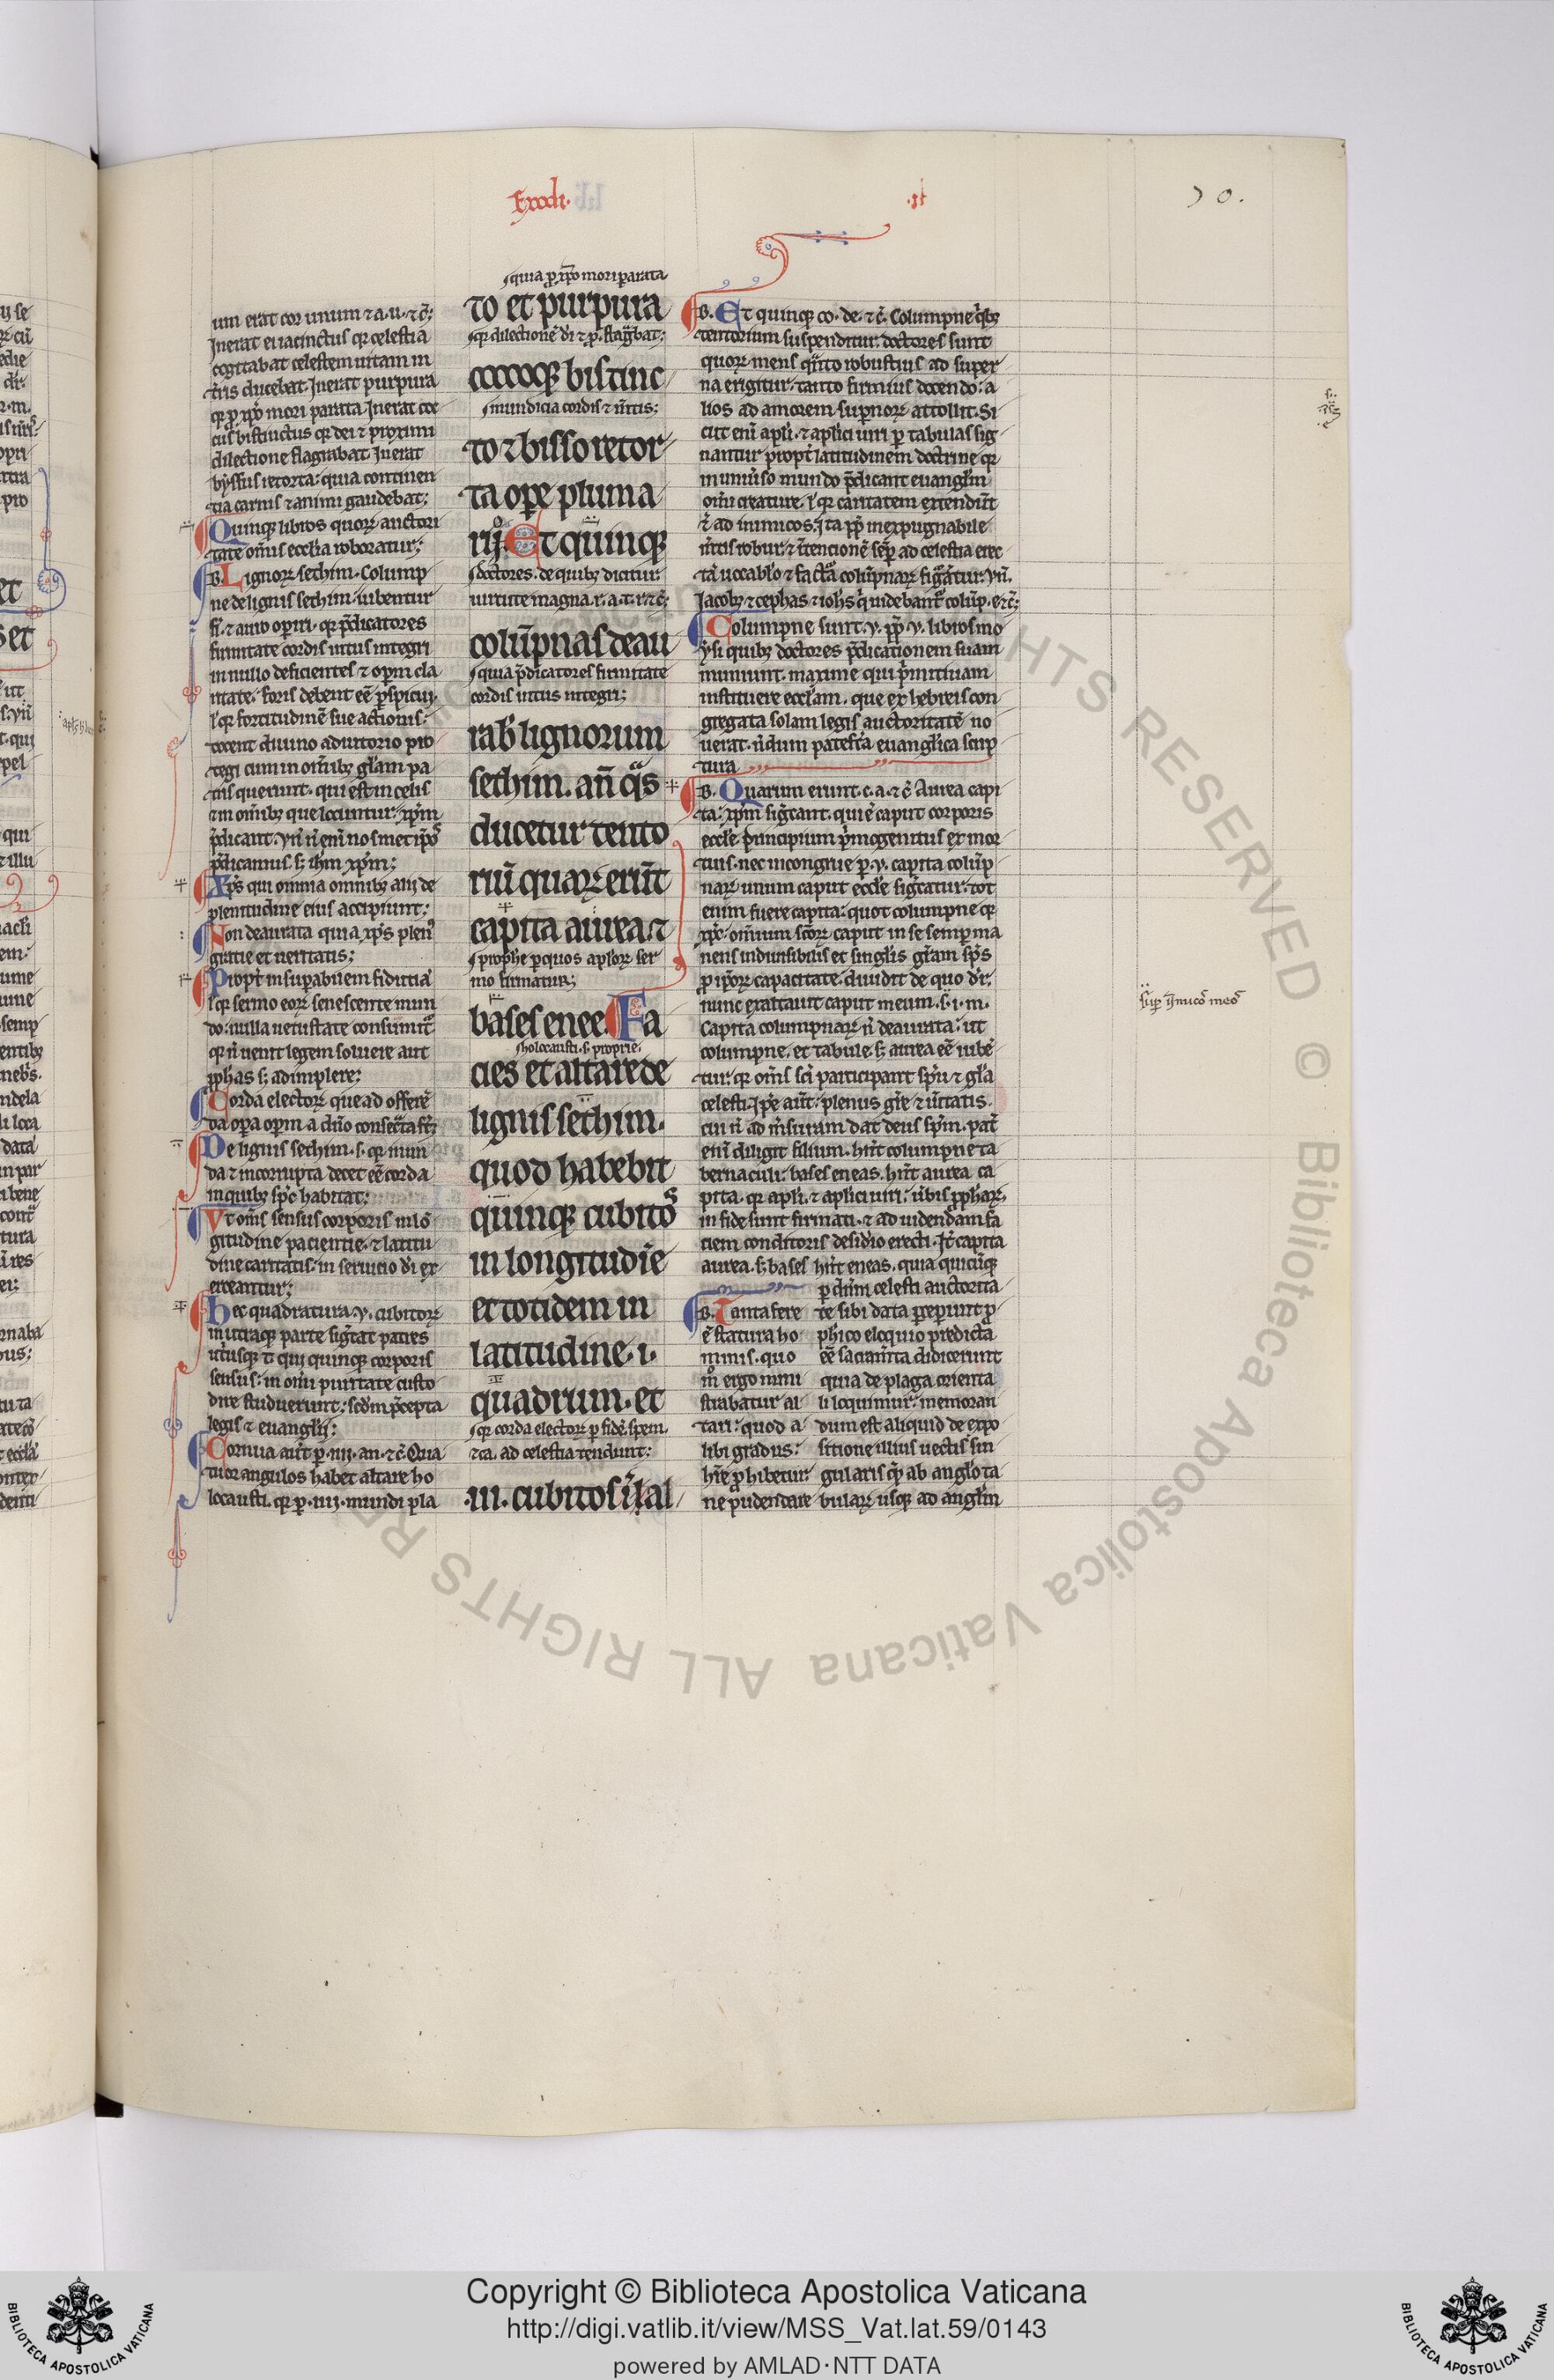 Exodi.
.ii.
70.
um erat cor unum ⁊ a.u.⁊c̄;
Inerat ei iacinctus qr celestia
cogitabat celestem uitam in
t̄ris ducebat. Inerat purpura
qr ꝓ xp̄o mori parata. Inerat coc
cus bistinctus qr dei ⁊ proximi
dilectione flagrabat. Inerat
byssus retorta: quia continen
tia carnis ⁊ animi gaudebat;
Quinqꝫ libros quoꝝ auctori
tate om̄is ecclia roboratur;
B. Lignoꝝ sethim. Colump
ne de lignis sethim iubentur
fi. ⁊ auro operiri. qr p̄dicatores
firmitate cordis intus integri
in nullo deficientes ⁊ opm̄ cla
ritate. foris debent eē ꝑspicui.
l' qr fortitudinē sue actionis.
docent diuino adiutorio pro
tegi cum in om̄ibꝫ gl'am pa
tris querunt. qui est in celis
⁊ in om̄ibꝫ que locuntur. xp̄m
p̄dicant. Vn̄ n̄ eni nosmet ip̄os
p̄dicamus. sꝫ ih̄m xp̄m;
Xp̄s qui omnia omnibꝫ alij de
plenitudine eius accipiunt;
Non deaurata quia xp̄s plen'
gratie et ueritatis;
Propt̄ insuꝑabilem fiducia
l' qr sermo eoꝝ senescente mun
do: nulla uetustate consumit̄
qr n̄ uenit legem soluere aut
ꝓphas sꝫ adimplere;
Corda electoꝝ que ad offerē
da oꝑa opm̄ a dn̄o consecrata st̄;
De lignis sethim. s. qr mun
da ⁊ incorrupta decet eē corda
in quibꝫ sp̄c habitat;
Vt om̄s sensus corporis in lō
gitudine pacientie. ⁊ latitu
dine caritatis. in seruicio d̄i ex
erceantur;
Hec quadratura .v. cubitoꝝ
in utraqꝫ parte sigt̄cat patres
ut̄iusqꝫ t̄ qui quinqꝫ corporis
sensus: in om̄i puritate custo
dire studuerunt: scdm̄ p̄cepta
legis ⁊ euanglij;
Cornua aut̄ ꝑ .iiij. an. ⁊c̄. Qua
tuor angulos habet altare ho
locausti. qr ꝑ .iiij. mundi pla
quia ꝓ xp̄o mori parata
to et purpura
qr dilectionē d̄i ⁊ p. flagbat;
coccoqꝫ bistinc
mundicia cordis ⁊ u̅tis;
to ⁊ bisso retor
ta oꝑe pluma
rij. Et quinqꝫ
doctores. de quibꝫ dicitur
uirtute magna .r. a. t. r. ⁊c̄;
colūpnas deau
quia p̄dicatores firmitate
cordis intus integri;
rab' lignorum
sethim. an̄ q̄s
ducetur tento
riū quaꝝ erūt
capita aurea ⁊
prophe ꝑ quos ap̄loꝝ ser
mo firmatur;
bases enee. Fa
holocausti. s. proprie.
cies et altare de
lignis sethim.
quod habebit
quinqꝫ cubitos
in longitudīe
et totidem in
latitudine. i.
quadrum. et
qr corda electoꝝ ꝑ fidē. spem.
⁊ ca. ad celestia tendunt;
.iii. cubitos in al
B. Et quinqꝫ co. de. ⁊c̄. Columpne qͥbꝫ
tentorium suspenditur. doctores sunt
quoꝝ mens qͣnto robustius ad super
na erigitur. tanto firmius docendo: a
lios ad amorem suꝑnoꝝ attollit. Si
cut eni ap̄li. ⁊ ap̄lici uiri ꝑ tabulas sig
nantur propt̄ latitudinem doctrine qr
in uniu̅so mundo p̄dicant euangl̄m
om̄i creature. l' qr caritatem extendūt
⁊ ad inimicos. ita ꝓp̄ inexpugnabile
u̅tis robur. ⁊ intencionē seꝑ ad celestia erec
tā uocablo ⁊ factā colūpnaꝝ figurātur. Vn̄.
Iacobꝫ ⁊ cephas ⁊ iohs qͥ uidebant̄ colūp. e. ⁊c̄;
Columpne sunt .v. ꝓp̄ .v. libros mo
ysi quibꝫ doctores p̄dicationem suam
muniunt. maxime qui p̄mitiuam
instituere eccl'am. que ex hebreis con
gregata solam legis auctoritatē no
uerat. n̄dum patefc̄a euanglica scrip
tura
B. Quarum erunt .c. a. ⁊c̄. Aurea capi
ta: xp̄m sigt̄cant. qui ē caput corporis
eccl'e. principium p̄mogenitus ex mor
tuis. nec incongrue ꝑ .v. capita colūp
naꝝ unum caput eccl'e sigt̄catur. tot
enim fuere capita: quot columpne qr
xp̄c. omnium sc̄oꝝ caput in se semꝑ ma
nens indiuisibilis et singl'is gr̄am sp̄s
ꝓ ip̄oꝝ capacitate diuidit de quo dr̄.
nunc exaltauit caput meum .s. i. m.
Capita columpnaꝝ n̄ deaurata: ut
columpne. et tabule. sꝫ aurea eē iubē
tur. qr om̄s sc̄i participant sp̄u ⁊ gr̄a
celesti. Ip̄e aut̄: plenus gr̄e ⁊ u̅itatis.
cui n̄ ad m̄suram dat deus sp̄m. pat̄
eni diligit filium. Hn̄t columpne ta
bernaculi: bases eneas. hn̄t aurea ca
pita. qr ap̄li. ⁊ ap̄lici uiri: u̅bis ꝓphaꝝ.
in fide sunt firmati. ⁊ ad uidendam fa
ciem conditoris desid̄io erecti. It̄ capita
aurea. sꝫ bases hn̄t eneas. quia quicūqꝫ
B. Tanta fere
ē statura ho
minis. quo
m̄ ergo mini
strabatur al
tari: quod a
libi gradus:
hīe ꝓhibetur.
ne pudendare
ꝑ dn̄m celesti auctorita
te sibi data ꝑceꝑunt ꝓ
phico eloquio predicta
eē sacram̄ta didicerunt
quia de plaga orienta
li loquimur. memoran
dum est aliquid de expo
sitione illius uectis sin
gularis qͥ ab anglo ta
bulaꝝ usqꝫ ad anglm̄
suꝑ inimicos meos
Copyright © Biblioteca Apostolica Vaticana
http://digi.vatlib.it/view/MSS_Vat.lat.59/0143
powered by AMLAD·NTT DATA
BIBLIOTECA APOSTOLICA VATICANA
BIBLIOTECA APOSTOLICA VATICANA
Biblioteca Apostolica Vaticana ALL RIGHTS RESERVED ©